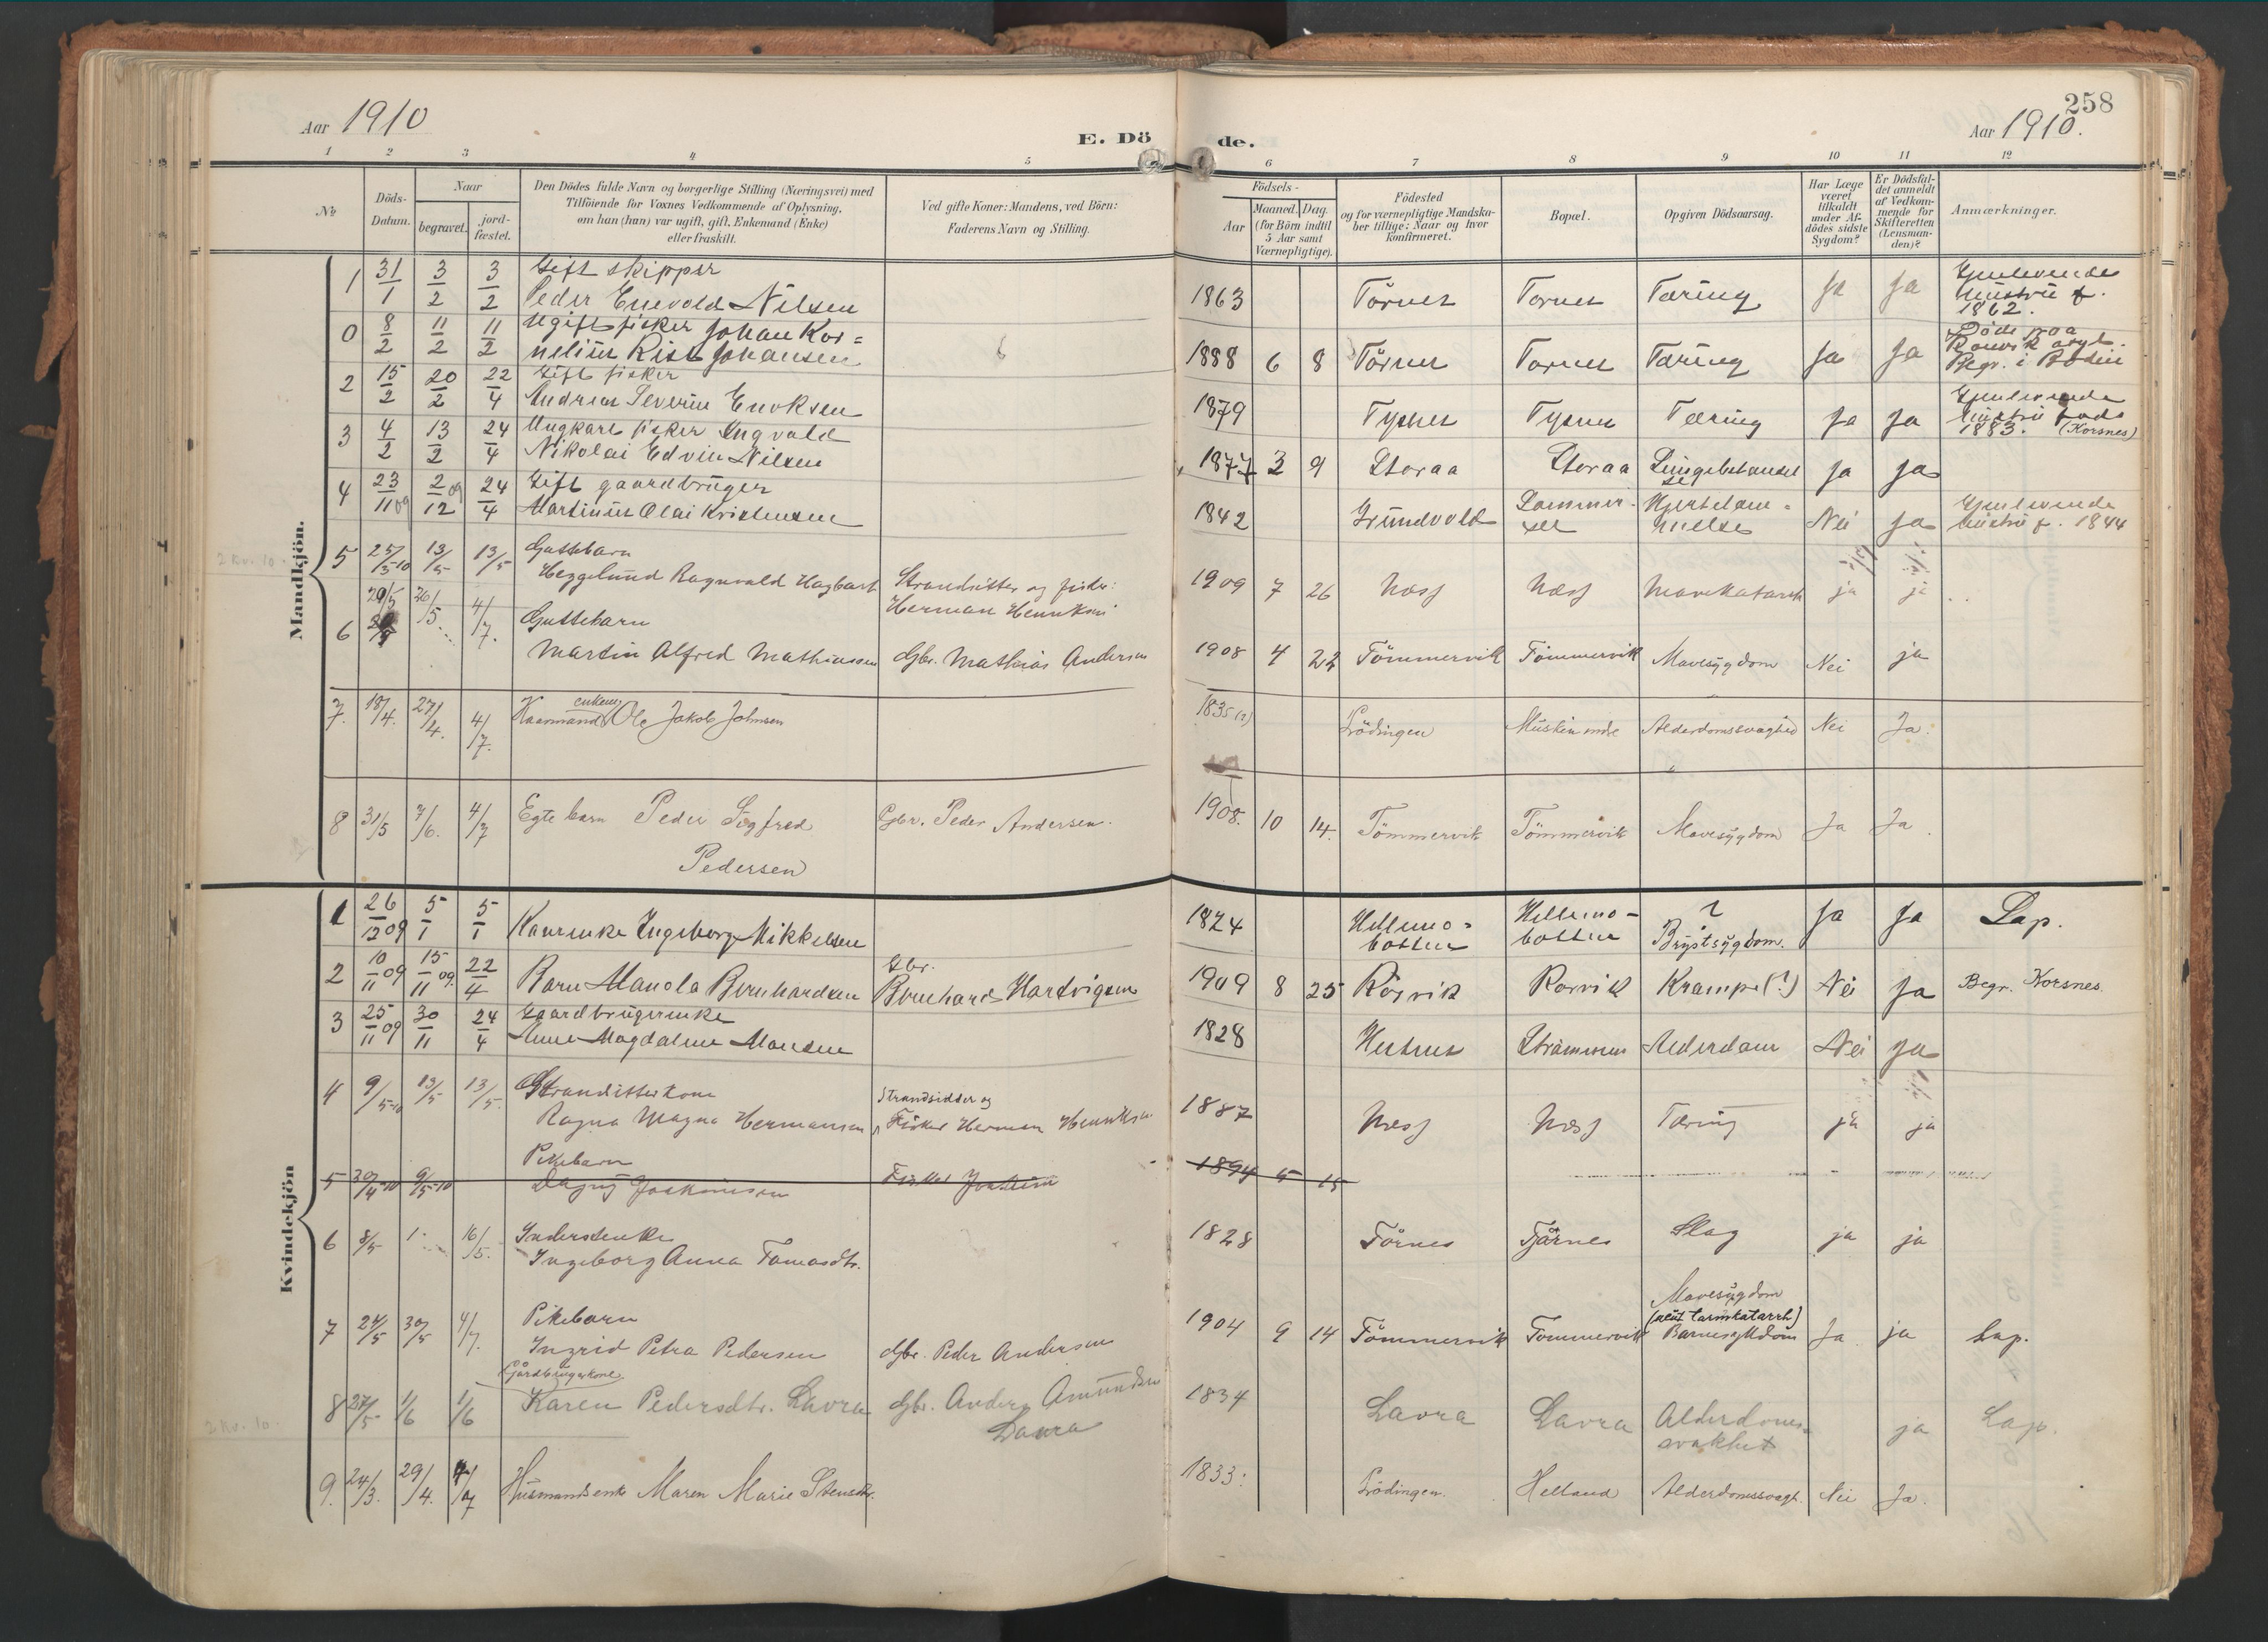 258
Aar 1910
E. Döde.
Aar 1910.
1 2 3 4 5 6 7 8 9 10 11 12
№
Döds-Datum.
Naar
begravet.
jordfæstet.
Den Dödes fulde Navn og borgerlige Stilling (Næringsvei) med
Tilföiende for Voxnes Vedkommende af Oplysning,
om han (hun) var ugift, gift, Enkemand (Enke)
eller fraskilt.
Ved gifte Koner: Mandens, ved Börn:
Faderens Navn og Stilling.
Födsels-
Aar
Maaned. Dag.
(for Börn indtil
5 Aar samt
Værnepligtige).
Födested
og for værnepligtige Mandskaber tillige: Naar og hvor
konfirmeret.
Bopæl.
Opgiven Dödsaarsag.
Har Læge
været
tilkaldt
under Afdödes sidste
Sygdom?
Er Dödsfaldet anmeldt
af Vedkommende for
Skifteretten
(Lensmanden)?
Anmærkninger.
Mandkjön.
1 31/1 3/2 3/2 Gift skipper
Peder Enevold Nilsen 1863 Törnes Tornes Tæring Ja Ja Gjenlevende
hustru f.
1862.
0 8/2 11/2 11/2 Ugift fisker Johan Kor=
nelius Rist Johansen 1888 6 8 Törnes Tornes Tæring Ja Ja Döde paa
Begr. i Bodin
2 15/2 20/2 22/4 Gift fisker
Andreas Severin Enoksen 1879 Tysnes Tysnes Tæring Ja Ja Gjenlevende
hustru föds
1883. (Korsnes)
3 4/2 13/2 24/4 Ungkarl fisker Ingvald
Nikolai Edvin Nilsen 1877 3 9 Storaa Storaa Ja Ja
4 23/11 09 2/12 09 24/4 Gift gaardbruger
Martinus Olai Kristensen 1842 Grundvold Nei Ja Gjenlevende
hustru f. 1844
5 25/3-10 13/5 13/5 Guttebarn
Heggelund Ragnvald Hagbart Strandsitter og fisker:
Herman Henriksen 1909 7 26 Næss Næss Mavekatarrh ja ja
6 29/5 4/7. Guttebarn
Martin Alfred Mathiassen Gbr. Mathias Andersen 1908 4 22 Tömmervik Tömmervik Mavesygdom Nei ja
7. 18/4. 27/4. 4/7. enkem Ole Jakob Johnsen 1835 (?) Lödingen Alderdomssvaghed Nei Ja.
8 31/5 7/6. 4/7 Egte barn Peder Sigfred
Pedersen Gbr. Peder Andersen. 1908. 10 14. Tömmervik Tömmervik Mavesygdom Ja Ja.
Kvindekjön
1 26/12 09 5/1 5/1 Kaarenke Ingeborg Mikkelsen 1824 Hellemo=
botten Hellemo-
botten ?
Brystsygdom. Ja Ja Lap.
2 10/11 09 15/11 09. 22/4 Barn Manola Bernhardsen Gbr.
Bernhard Hartvigsen 1909 8 25 Rörvik Rorvik Krampe (?) Nei Ja Begr. Korsnes.
3 25/11 09 30/11 24/4 Gaardbrugerenke
Anne Magdalene Monsen 1828 Hestnes Strömmen Alderdom Nei Ja
4 9/5-10 13/5 13/5. Strandsitterkone
Ragna Magna Hermansen Strandsidder og
Fisker Herman Henriksen 1887 Næss Næss Tæring ja ja
5 30/4-10 9/5-10 Pikebarn
Dagny Joakimsen Fisker Joakim 1894 5 15
6 8/5 16/5. Inderstenke
Ingeborg Anna Tomasdtr. 1828 Törnes Tjårnes Slag ja ja
7 24/5 30/5 4/7. Pikebarn
Ingrid Petra Pedersen Gbr. Peder Andersen 1904 9 14 Tömmervik Tömmervik Mavesygdom
(akut tarmkatarrh)
Barnesykdom Ja ja Lap.
8 27/5 1/6 1/6 Gårdbrugerkone
Karen Pedersdtr. Lavra Gbr. Anders Amundsen
Lavra 1834 Lavra Lavra Alderdoms=
svakhet ja Lap.
9. 24/3. 29/4. 4/7 Husmandsenke Maren Marie Stensdtr. 1833. Lödingen. Helland Alderdomssvagh. Nei Ja.